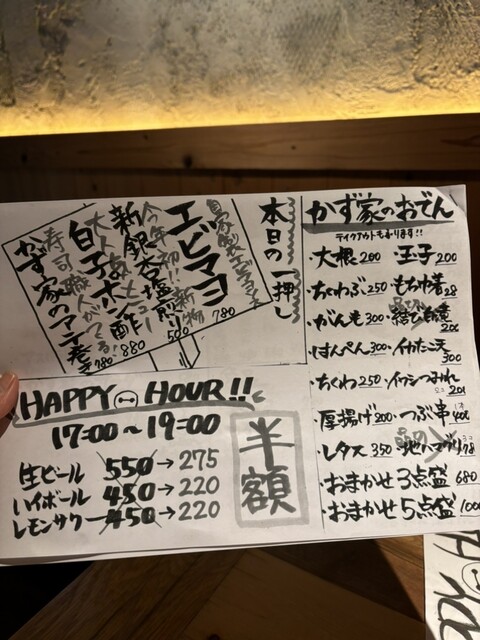 本日の一押し
自家製エビマヨ
エビマヨ 780
今年初!!新物
新銀杏塩煎り 500
大人気
白子ポン酢 880
寿司職人がてる!
かず家のアナ巻き 780
かず家のおでん
テイクアウトもあります!!
・大根 200 ・玉子 200
・ちくわぶ 250 ・もちきん着 28
・がんも 300 ・結び 200
・はんぺん 300 ・イカたこ天 300
・ちくわ 250 ・イワシつみれ 200
・厚揚げ 200 ・つぶ串 400
・レタス 350 ・地ハマグリ
・おまかせ3点盛 680
・おまかせ5点盛 1000
HAPPY HOUR!!
17:00〜19:00
生ビール 550→275
ハイボール 450→220
レモンサワー 450→220
半額